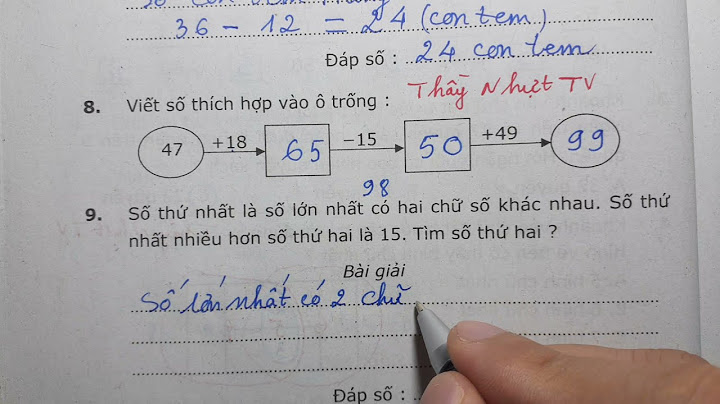 36 - 12 = 24 (con tem)
Đáp số : 24 con tem
Thầy Nhựt TV
8. Viết số thích hợp vào ô trống :
47 +18 65 -15 50 +49 99
98
9. Số thứ nhất là số lớn nhất có hai chữ số khác nhau. Số thứ
nhất nhiều hơn số thứ hai là 15. Tìm số thứ hai ?
Bài giải
Số lớn nhất có 2 chữ
Đáp số :